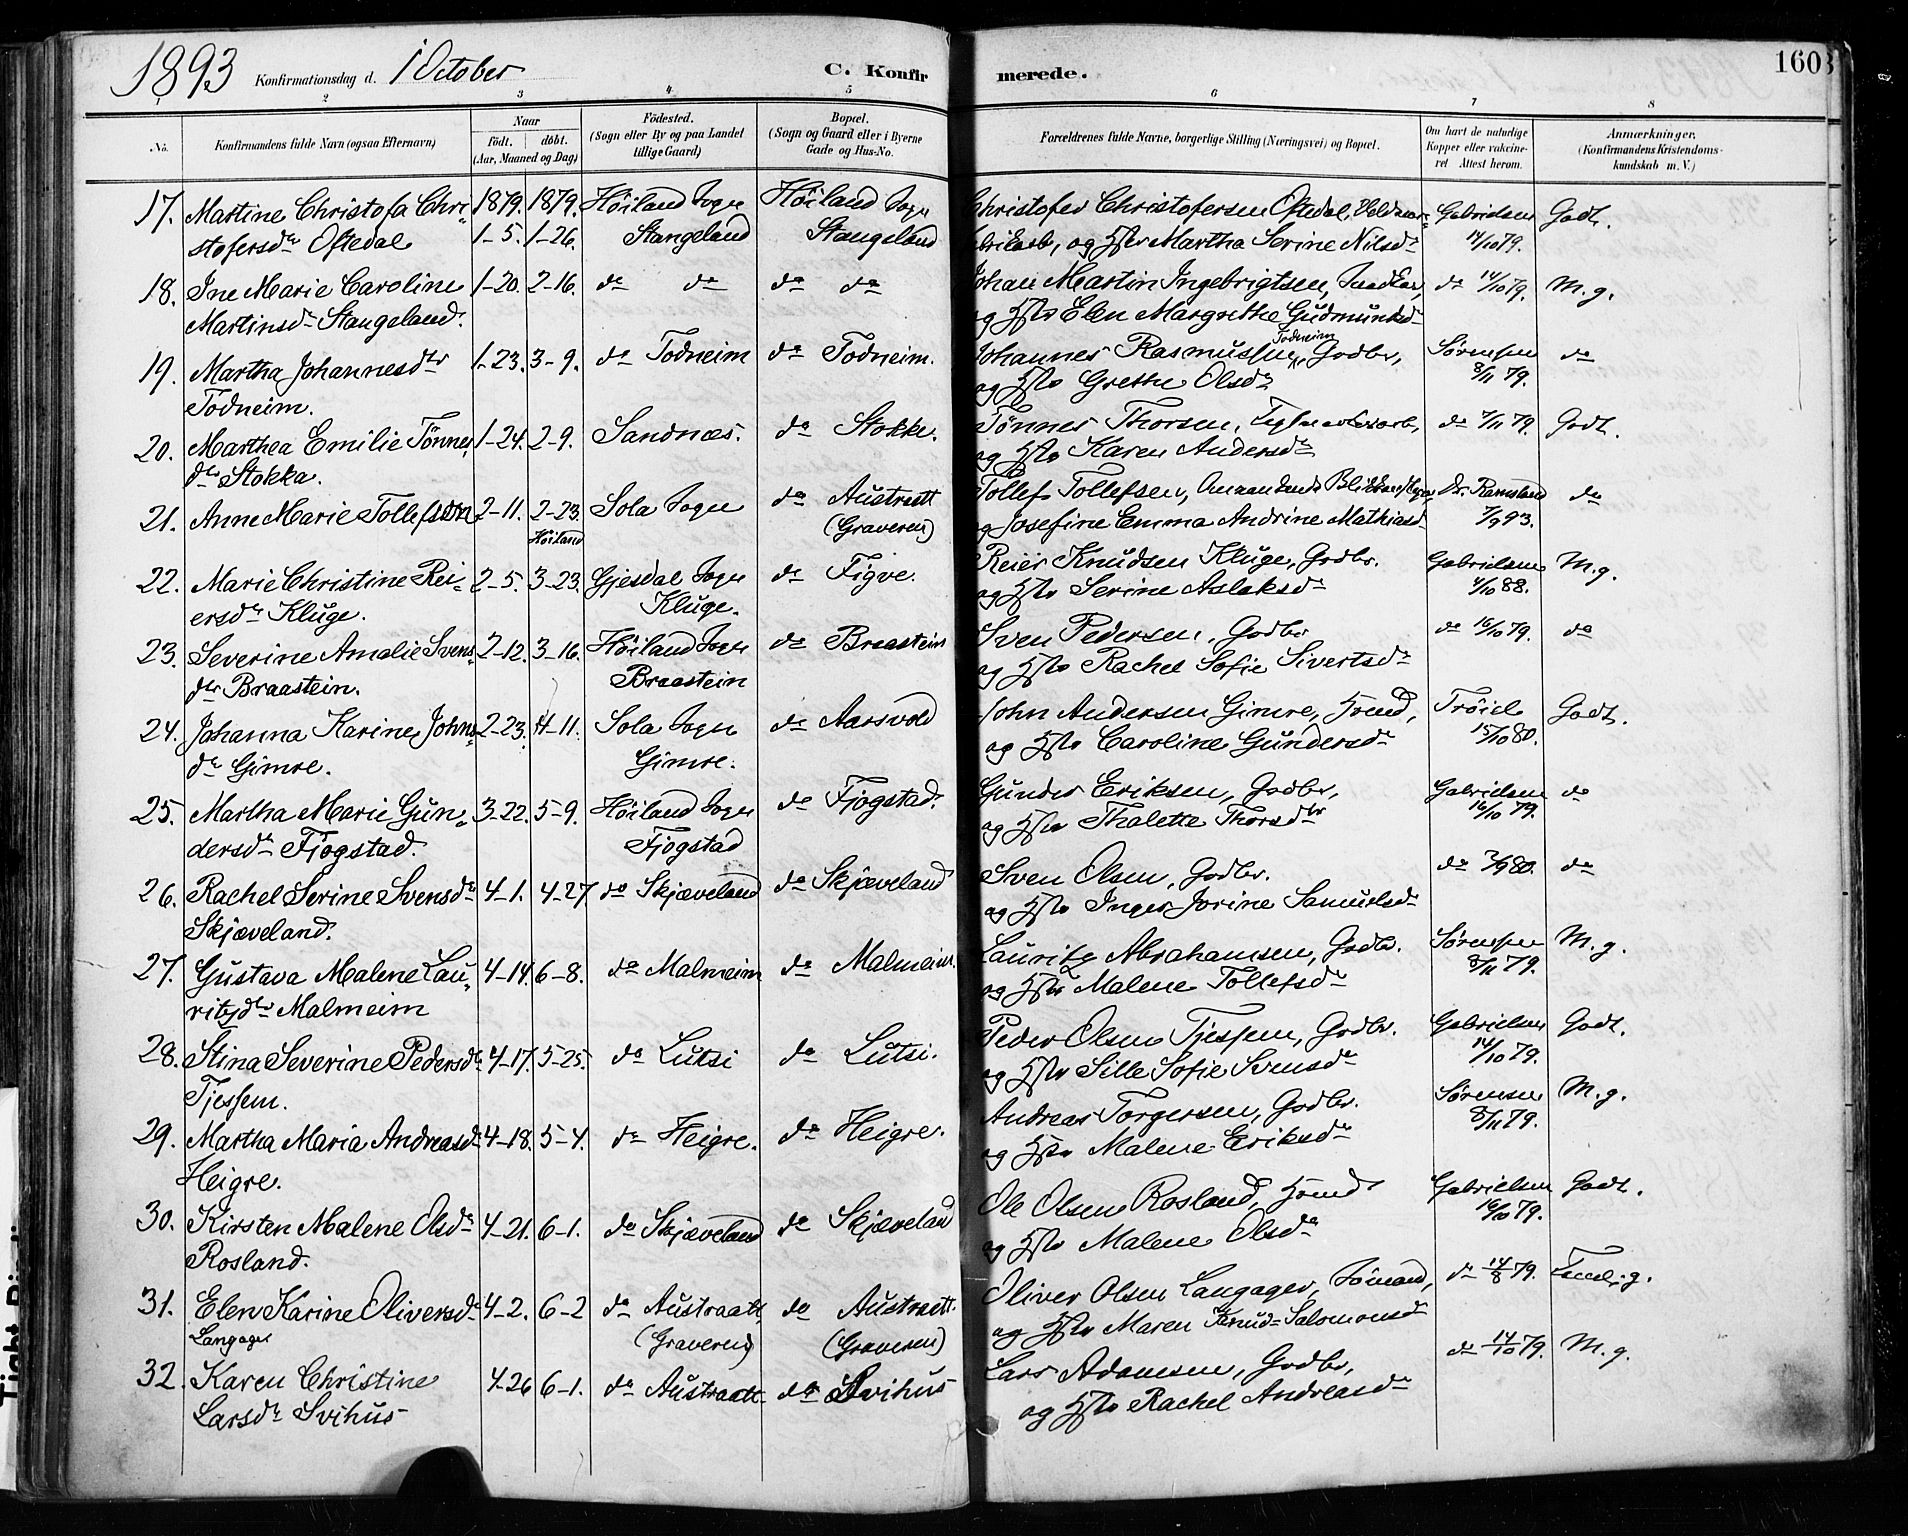 1893 Konfirmationsdag d. 1 October C. Konfirmerede. 160
2 3 4 5 6 7 8
No. Konfirmandens fulde Navn (ogsaa Efternavn) Naar født. døbt. (Aar, Maaned og Dag) Födested. (Sogn eller By og paa Landet tillige Gaard) Bopæl. (Sogn og Gaard eller i Byerne Gade og Hus-No. Forældrenes fulde Navne, borgerlige Stilling (Næringsvei) og Bopæl. Om havt de naturlige Kopper eller vakcineret Attest herom. Anmærkninger. (Konfirmandens Kristendomskundskab m. V.)
17. Martine Christofa Chri- 1879. 1879. Höiland Sogn Höiland Sogn Christofer Christofersen Oftedal, Gabrielsen Godt.
stofersdtr Oftedal 1-5. 1-26. Stangeland Stangeland og Hstr Martha Serine Nilsdr 14/10 79.
18. Ine Marie Caroline 1-20. 2-16. do do do do Johan Martin Ingebrigtsen, do 14/10 79. M.g.
Martinsdr Stangeland. og Hstr Elen Margrethe Gudmundsdr
19. Martha Johannesdtr 1-23. 3-9. do Todneim do Todneim. Johannes Rasmussen Todneim, Gadbr, Sørensen do
Todneim. og Hstr Grethe Olsdr 8/11 79.
20. Marthea Emilie Tönnes 1-24. 2-9. Sandnæs. do Stokke. Tønnes Thorsen, do 7/11 79. Godt.
dtr Stokka. og Hstr Karen Andersdr
21. Anne Marie Tollefsen 2-11. 2-23. Höiland Sola Sogn do Austraatt (Graveren) Tollef Tollefsen, Dr. Ramsland do
og Josefine Emma Andrine Mathiasd 7/9 93.
22. Marie Christine Rei- 2-5. 3-23. Gjesdal Sogn do Figve. Reier Knudsen Kluge, Gadbr. Gabrielsen M.g.
ersdr Kluge. Kluge. og Hstr Serine Aslaksdr 4/10 88.
23. Severine Amalie Svens 2-12. 3-16. Höiland Sogn do Braastein Sven Pedersen, Gadbr do 16/10 79. do
dtr Braastein. Braastein og Hstr Rachel Sofie Sivertsdr
24. Johanna Karine Johns 2-23. 4-11. Sola Sogn do Aarsvold John Andersen Gimre, Husmd, Trøid Godt.
dr Gimre. Gimre. og Hstr Caroline Gundersdr 15/10 80.
25. Martha Marie Gun- 3-22. 5-9. Höiland Sogn do Fjogstad. Gunder Eriksen, Gadbr, Gabrielsen do
dersdr Fjogstad. Fjogstad og Hstr Thalette Thorsdtr 16/10 79.
26. Rachel Serine Svensdr 4-1. 4-27 do Skjæveland do Skjæveland Sven Olsen, Gadbr. do 7/9 80. do
Skjæveland. og Hstr Inger Jorine Samuelsdr
27. Gustava Malene Lau- 4-14. 6-8. do Malmeim do Malmeim. Lauritz Abrahamsen, Gadbr. Sørensen M.g.
ritzdtr Malmeim og Hstr Malene Tollefsdr 8/11 79.
28. Stina Severine Pedersdr 4-17. 5-25. do Lutsi do Lutsi. Peder Olsen Tjessem, Gadbr. Gabrielsen Godt.
Tjessem. og Hstr Sille Sofie Svensdr 14/10 79.
29. Martha Maria Andreasdr 4-18. 5-4. do Heigre. do Heigre. Andreas Torgersen, Gadbr. Sørensen M.g.
Heigre. og Hstr Malene Eriksdr 8/11 79.
30. Kirsten Malene Olsdr 4-21. 6-1. do Skjæveland do Skjæveland Ole Olsen Rosland, Husmd Gabrielsen Godt.
Rosland. og Hstr Malene Olsdr 16/10 79.
31. Elen Karine Oliversdr 4-2. 6-2 do Austraatt do Austraatt. Oliver Olsen Langager, Sömand, do 14/8 79.
Langager (Graveren) (Graveren) og Hstr Maren Knud-Salomonsdr
32. Karen Christine 4-26 6-1. do Austraatt do Svihus Lars Adamsen, Gadbr, do 14/10 79. M.g.
Larsdr Svihus og Hstr Rachel Andreasdr